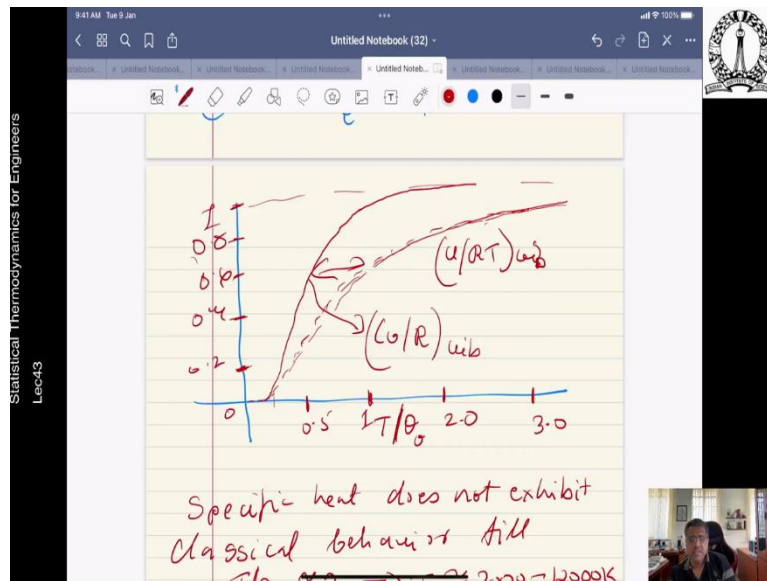 9:41 AM Tue 9 Jan
100%
Untitled Notebook (32)
Notebook...
Untitled Notebook...
Untitled Notebook...
Untitled Notebook...
Untitled Noteb...
Untitled Notebook...
Untitled Notebook...
Untitled Notebook...
Statistical Thermodynamics for Engineers
Lec43
1
0.8
0.6
0.4
0.2
0
(U/RT)vib
(Cv/R)vib
0.5
1
T/θv
2.0
3.0
Specific heat does not exhibit
classical behavior till